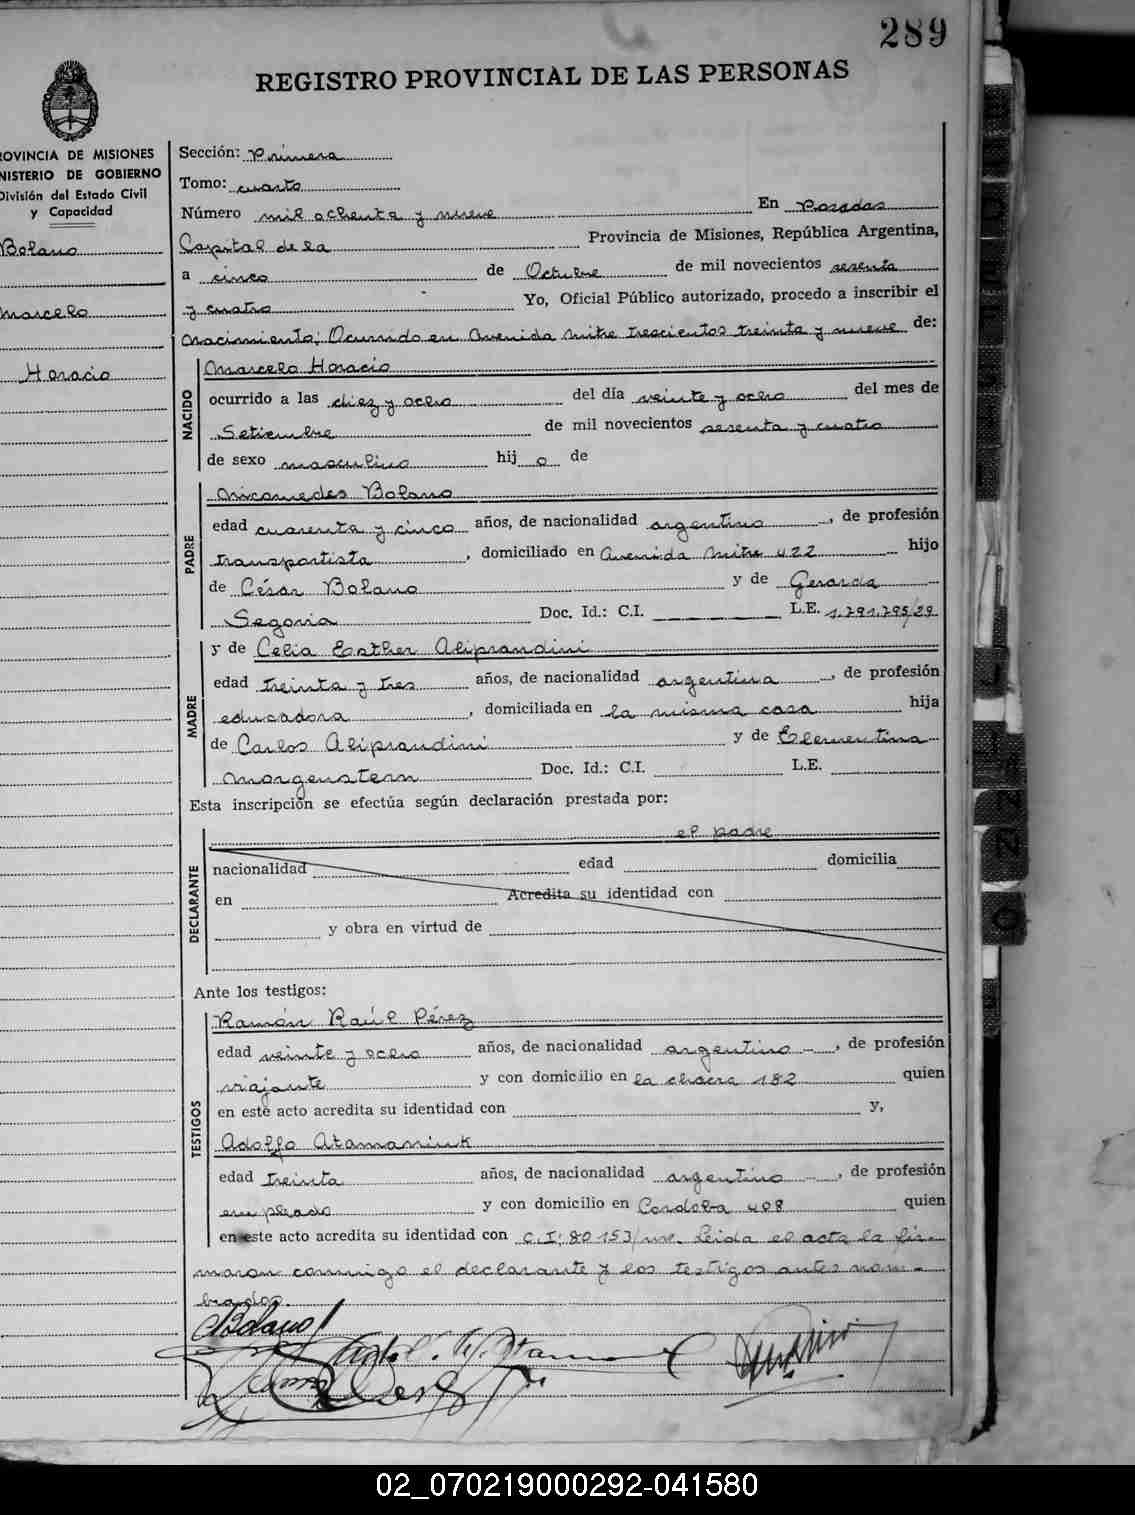 289
REGISTRO PROVINCIAL DE LAS PERSONAS
ROVINCIA DE MISIONES
NISTERIO DE GOBIERNO
División del Estado Civil
y Capacidad
Bolano
Marcelo
Horacio
Sección: Primera
Tomo: cuarto
Número mil ochenta y nueve En Posadas
Capital de la Provincia de Misiones, República Argentina,
a cinco de Octubre de mil novecientos sesenta
y cuatro Yo, Oficial Público autorizado, procedo a inscribir el
nacimiento; Ocurrido en Avenida Mitre trescientos treinta y nueve de:
NACIDO
Marcelo Horacio
ocurrido a las diez y ocho del día veinte y ocho del mes de
Setiembre de mil novecientos sesenta y cuatro
de sexo masculino hij o de
PADRE
Nicomedes Bolano
edad cuarenta y cinco años, de nacionalidad argentino, de profesión
transportista, domiciliado en Avenida Mitre 422 hijo
de César Bolano y de Gerarda
Segovia Doc. Id.: C.I. L.E. 1.791.795/29
MADRE
y de Celia Esther Aliprandini
edad treinta y tres años, de nacionalidad argentina, de profesión
educadora, domiciliada en la misma casa hija
de Carlos Aliprandini y de Clementina
Morgenstern Doc. Id.: C.I. L.E.
Esta inscripción se efectúa según declaración prestada por:
el padre
DECLARANTE
nacionalidad edad domicilia
en Acredita su identidad con
y obra en virtud de
Ante los testigos:
TESTIGOS
Ramón Raúl Pérez
edad veinte y ocho años, de nacionalidad argentino, de profesión
viajante y con domicilio en la chacra 182 quien
en este acto acredita su identidad con y,
Adolfo Atamaniuk
edad treinta años, de nacionalidad argentino, de profesión
empleado y con domicilio en Cordoba 408 quien
en este acto acredita su identidad con C.I. 80153/ms. Leida el acta la fir-
maron conmigo el declarante y los testigos antes nom-
brados.
NBolano
02_070219000292-041580